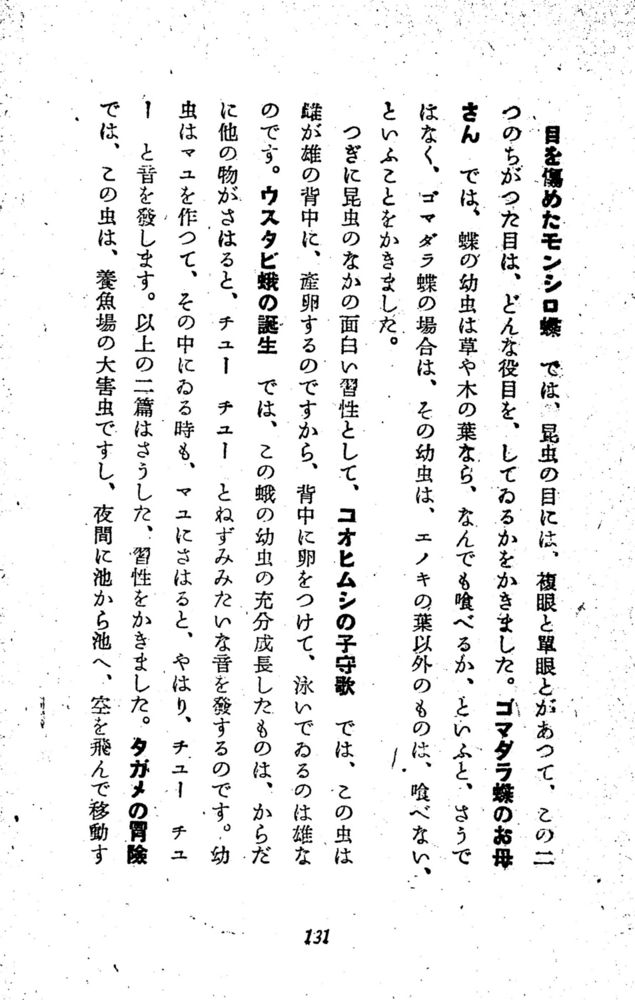 目を傷めたモンシロ蝶　では、昆虫の目には、複眼と單眼とがあつて、この二
つのちがつた目は、どんな役目を、してゐるかをかきました。ゴマダラ蝶のお母
さん　では、蝶の幼虫は草や木の葉なら、なんでも喰べるか、といふと、さうで
はなく、ゴマダラ蝶の場合は、その幼虫は、エノキの葉以外のものは、喰べない、
といふことをかきました。
つぎに昆虫のなかの面白い習性として、コオヒムシの子守歌　では、この虫は
雌が雄の背中に、産卵するのですから、背中に卵をつけて、泳いでゐるのは雄な
のです。ウスタビ蛾の誕生　では、この蛾の幼虫の充分成長したものは、からだ
に他の物がさはると、チュー　チュー　とねずみみたいな音を發するのです。幼
虫はマユを作つて、その中にゐる時も、マユにさはると、やはり、チュー　チュ
ー　と音を發します。以上の二篇はさうした、習性をかきました。タガメの冒險
では、この虫は、養魚場の大害虫ですし、夜間に池から池へ、空を飛んで移動す
131